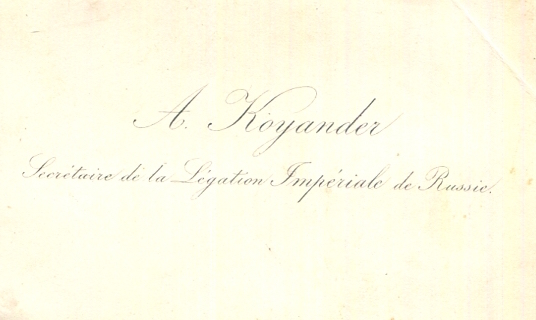 A. Koyander
Secrétaire de la Légation Impériale de Russie.